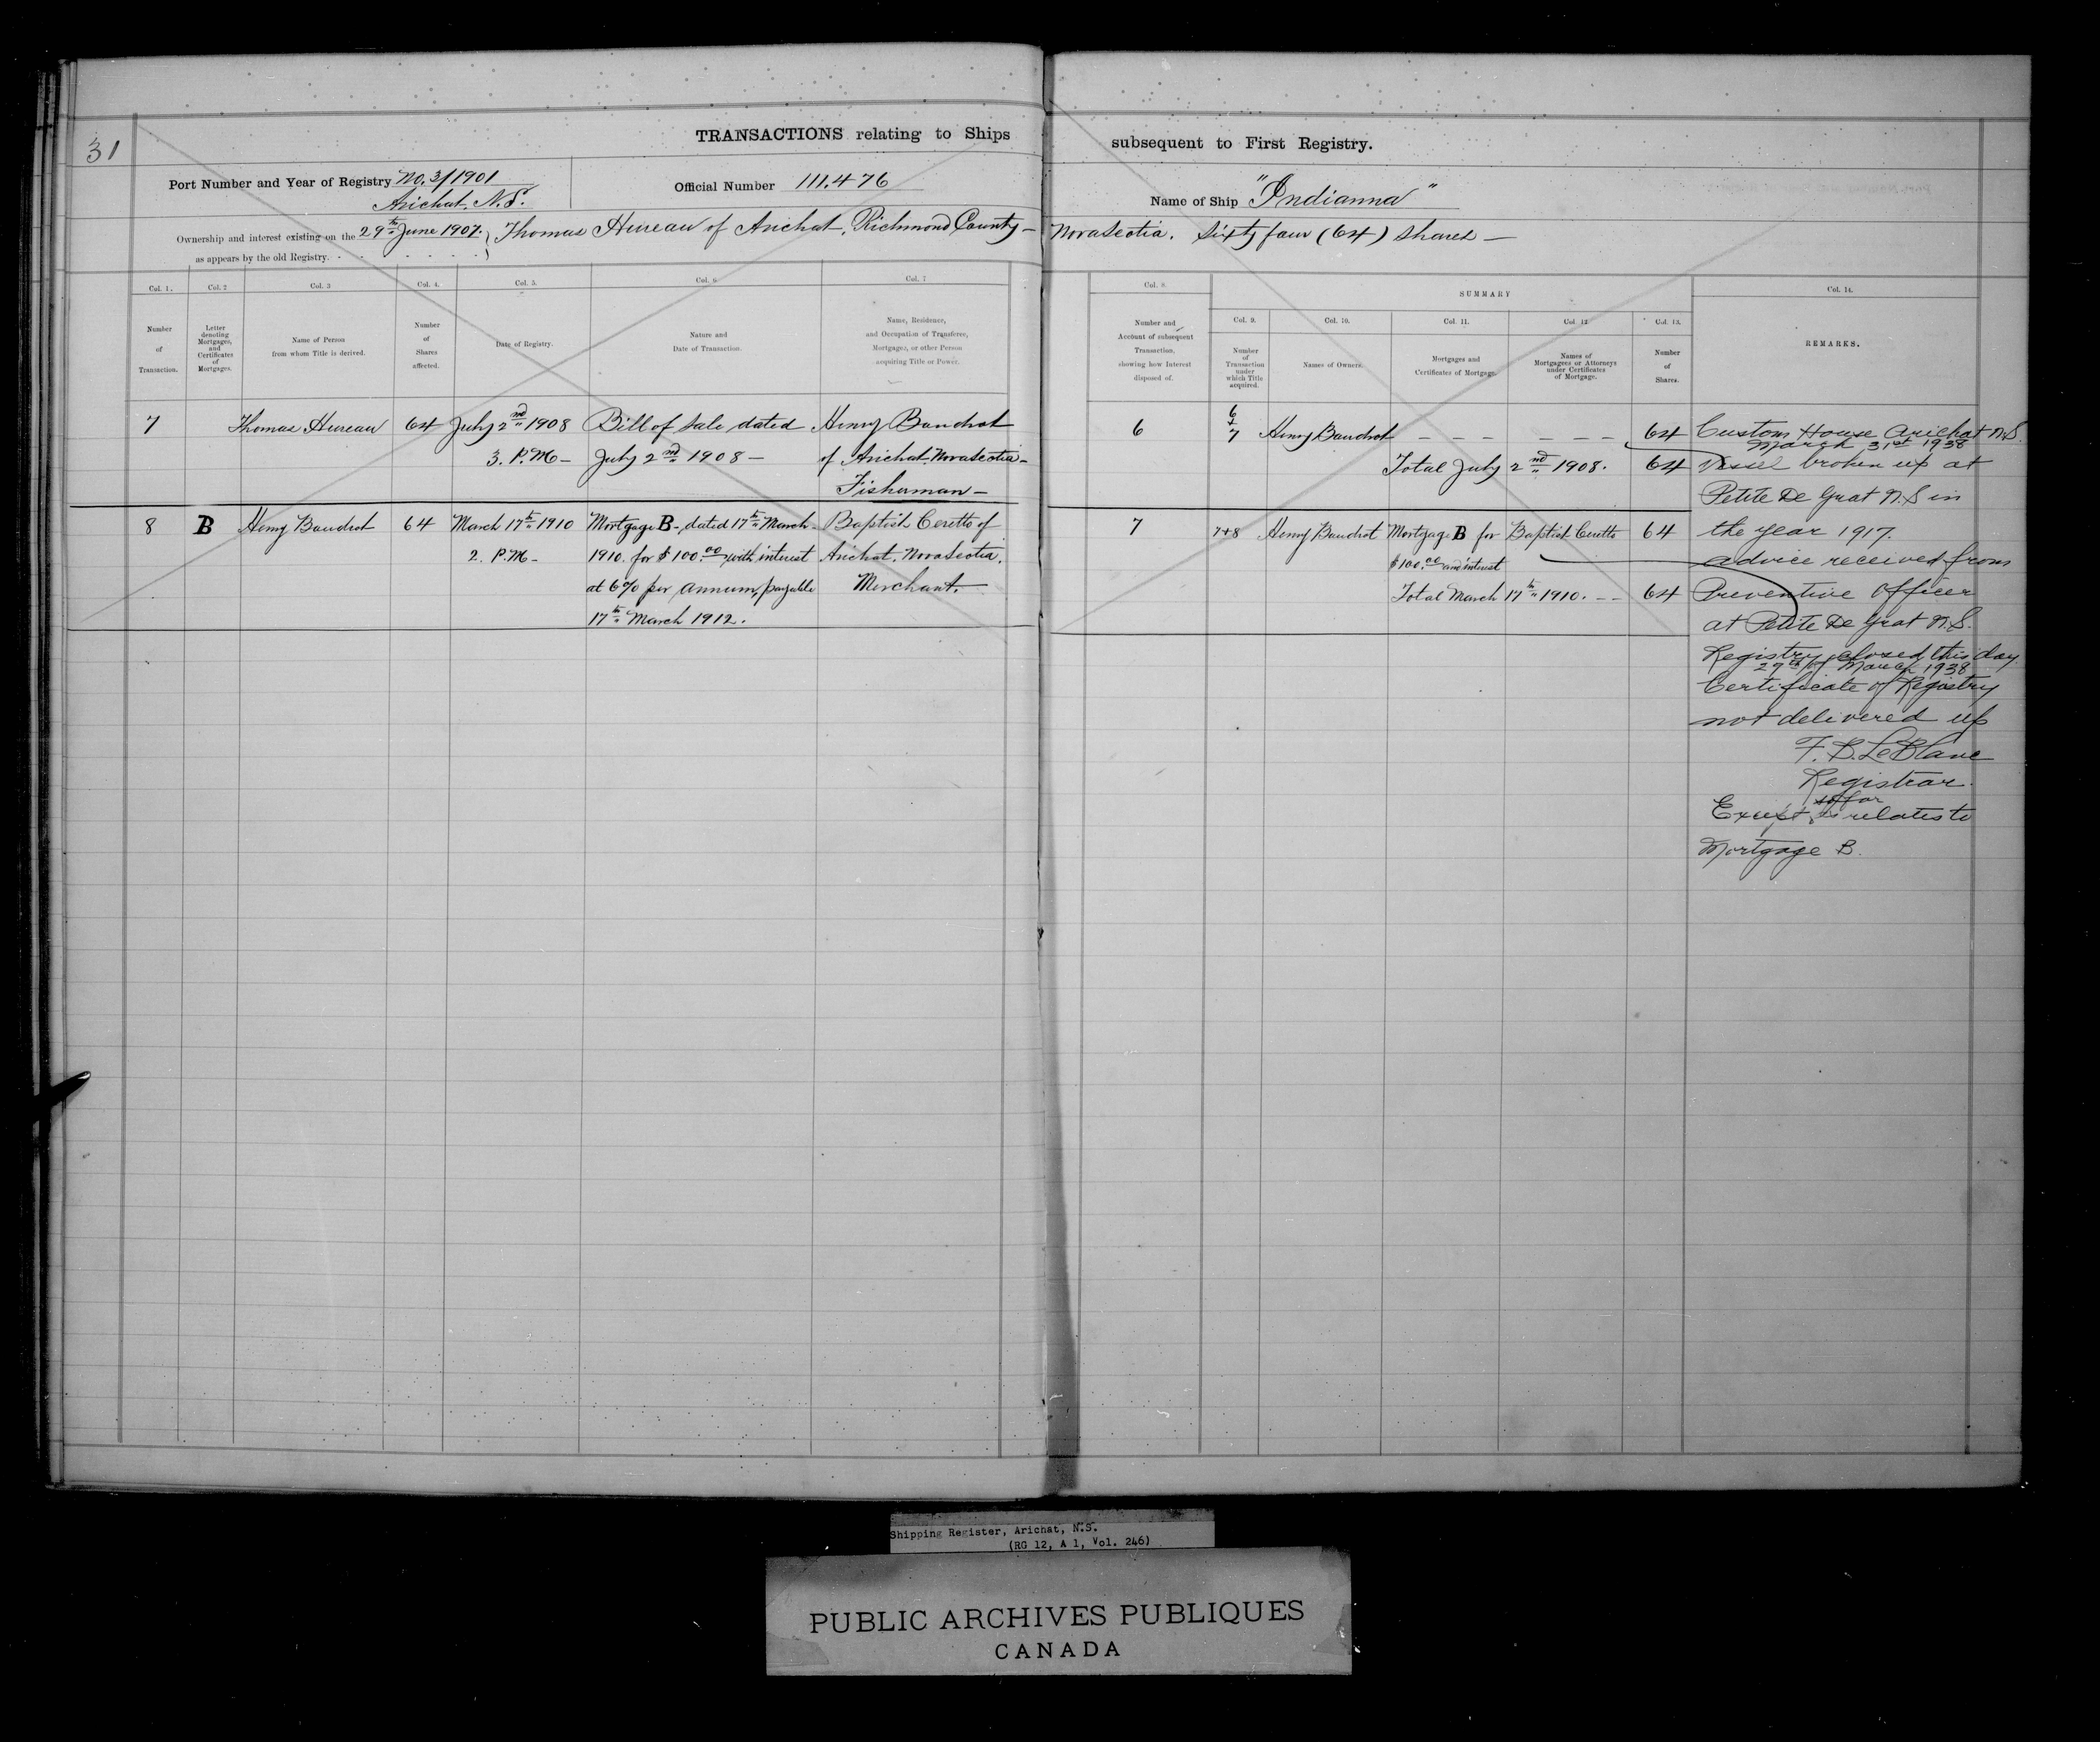 31
TRANSACTIONS relating to Ships subsequent to First Registry.
Port Number and Year of Registry No. 3/1901
Arichat. N.S.
Official Number 111.476
Name of Ship "Indianna"
Ownership and interest existing on the 29th June 1907. Thomas Hureau of Arichat, Richmond County - Nova Scotia. Sixty four (64) shares -
as appears by the old Registry.
Col. 1. Col. 2 Col. 3 Col. 4. Col. 5. Col. 6 Col. 7
Number of Transaction.
Letter denoting Mortgages, and Certificates of Mortgages.
Name of Person from whom Title is derived.
Number of Shares affected.
Date of Registry.
Nature and Date of Transaction.
Name, Residence, and Occupation of Transferee, Mortgagee, or other Person acquiring Title or Power.
7 Thomas Hureau 64 July 2nd 1908 Bill of Sale dated Henry Baudrot
3. P.M - July 2nd 1908 - of Arichat. Nova Scotia -
Fisherman -
8 B Henry Baudrot 64 March 17th 1910 Mortgage B - dated 17th March - Baptist Ceretto of
2. P.M - 1910. for $100.00 with interest Arichat. Nova Scotia.
at 6% per annum, payable Merchant.
17th March 1912.
Col. 8.
SUMMARY
Col. 14.
Col. 9. Col. 10. Col. 11. Col. 12 Col. 13.
Number and Account of subsequent Transaction, showing how Interest disposed of.
Number of Transaction under which Title acquired.
Names of Owners.
Mortgages and Certificates of Mortgage.
Names of Mortgagees or Attorneys under Certificates of Mortgage.
Number of Shares.
REMARKS.
6 6 + 7 Henry Baudrot - - - - - - 64
Total July 2nd 1908. 64
7 7+8 Henry Baudrot Mortgage B for Baptist Ceretto 64
$100.00 and interest
Total March 17th 1910. - - 64
Custom House Arichat N.S.
March 31st 1938
Vessel broken up at
Petite De Grat N.S in
the year 1917.
advice received from
Preventive Officer
at Petite De Grat N.S.
Registry closed this day
29th of March 1938
Certificate of Registry
not delivered up
F. B. LeBlanc
Registrar.
so far
Except as relates to
Mortgage B.
Shipping Register, Arichat, N.S.
(RG 12, A 1, Vol. 246)
PUBLIC ARCHIVES PUBLIQUES
CANADA